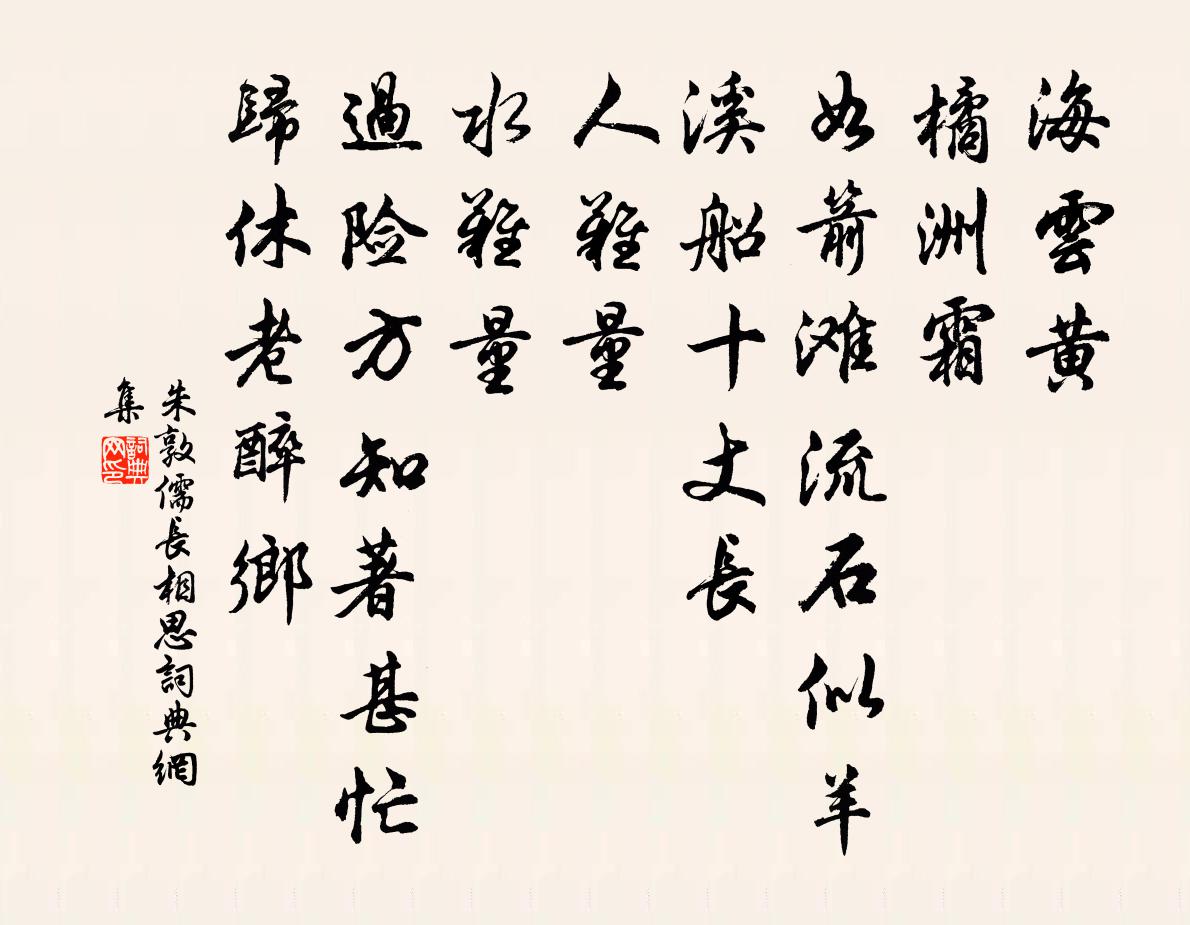 海雲黃
橘洲霜
如箭滩流石似羊
溪船十丈長
人難量
水難量
過險方知著甚忙
歸休老醉鄉
朱敦儒長相思詞典網
集
詞典
网印